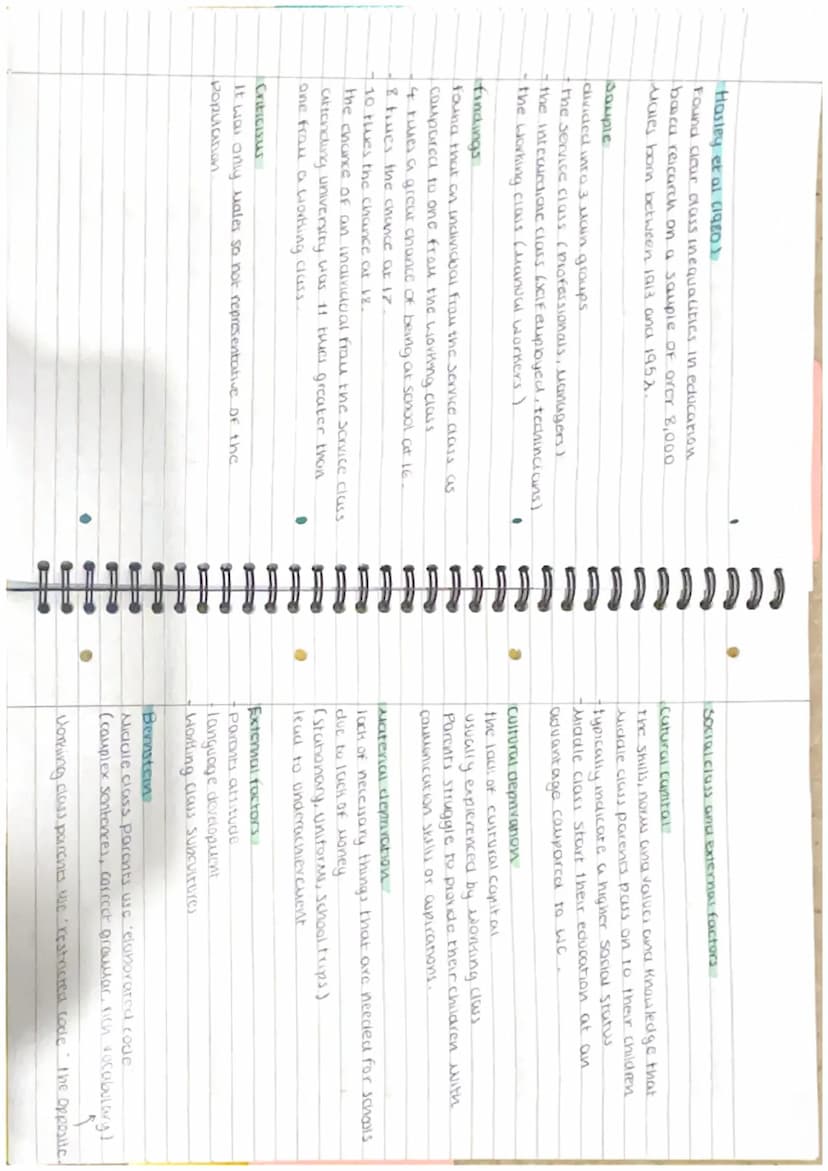 Hasley et al (1980)
Found clear class inequalities in education
based research on a sample of over 8,000
males born between 1913 and 1952.
Sample
divided into 3 main groups
- the service class (professionals, managers)
- the intermediate class (self employed, technincians)
- the working class (manual workers)
findings
found that an individual from the service class as
compared to one from the working class
- 4 times a great chance of being at school at 16.
- 8 times the chance at 17.
- 10 times the chance at 18.
the chance of an individual from the service class
attending university was 11 times greater than
one from a working class.
Criticism
It was only males so not representative of the
population
Social class and external factors
Cultural capital
the skills, norms and values and knowledge that
middle class parents pass on to their children
- typically indicate a higher social status
- Middle class start their education at an
advantage compared to WC.
Cultural deprivation
the lack of cultural capital
usually experienced by working class
Parents struggle to provide their children with
communication skills or aspirations.
Material deprivation
lack of necessary things that are needed for schools
due to lack of money
(stationary, uniforms, school trips)
lead to underachievement
External factors
- Parents attitude
- language development
- working class subcultures
Bernstein
Middle class parents use 'elaborated code
(complex sentences, correct grammar, rich vocabulary)
Working class parents use 'restricted code' the opposite.